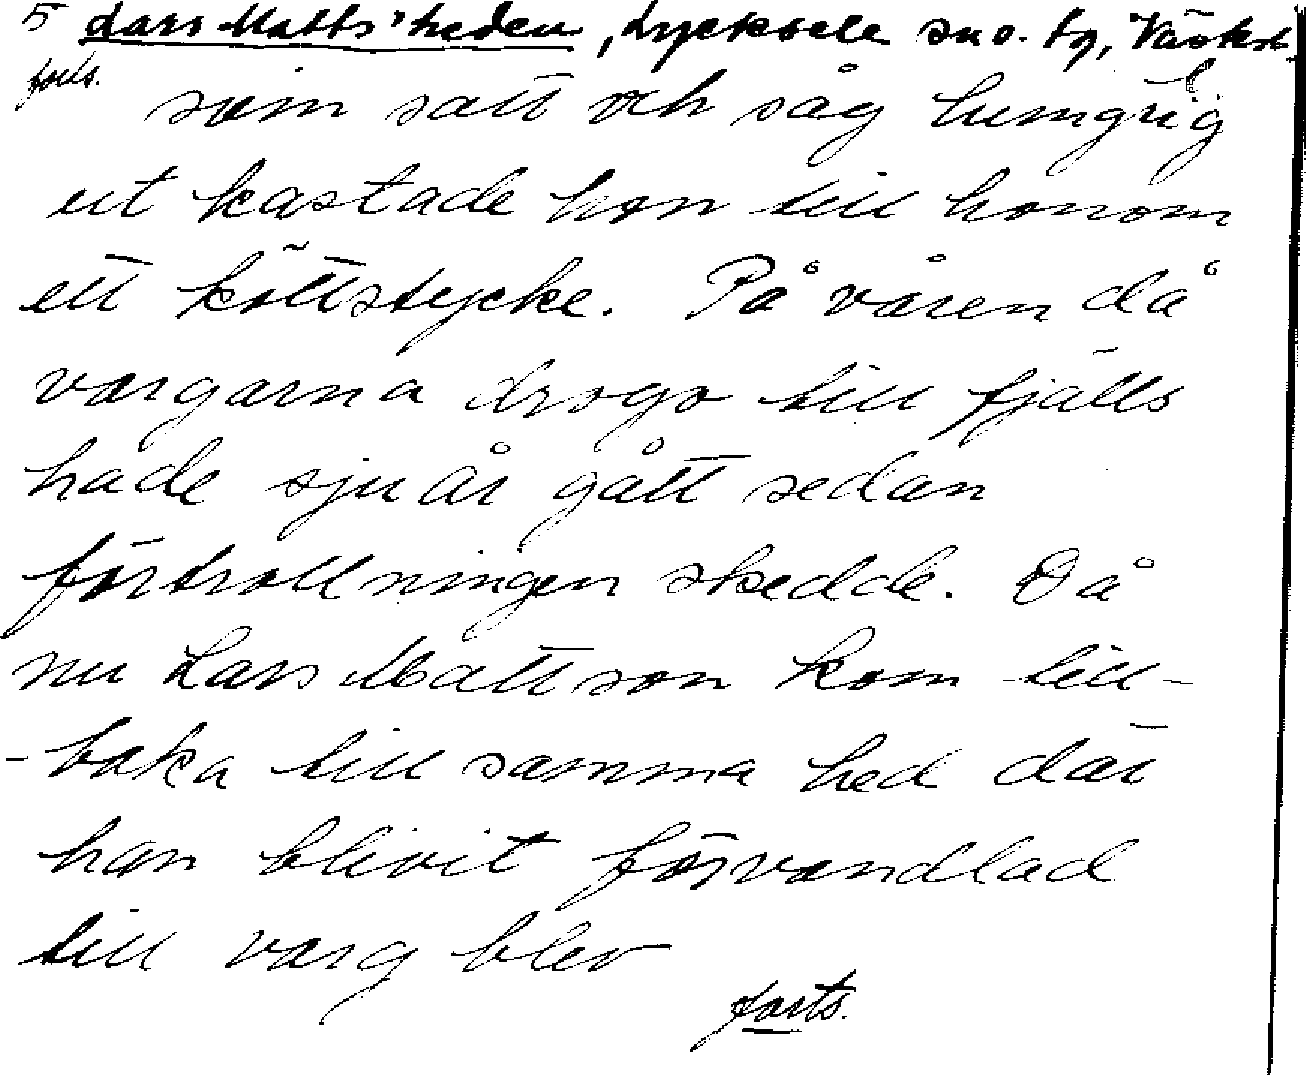 5 Lars Matts'heden, Lycksele sn o. tg, Västerb.
forts.
som satt och såg hungrig
ut kastade hon till honom
ett köttstycke. På våren då
vargarna drogo till fjälls
hade sju år gått sedan
förtrollningen skedde. Då
nu Lars Mattson kom till-
-baka till samma hed där
han blivit förvandlad
till varg blev
forts.